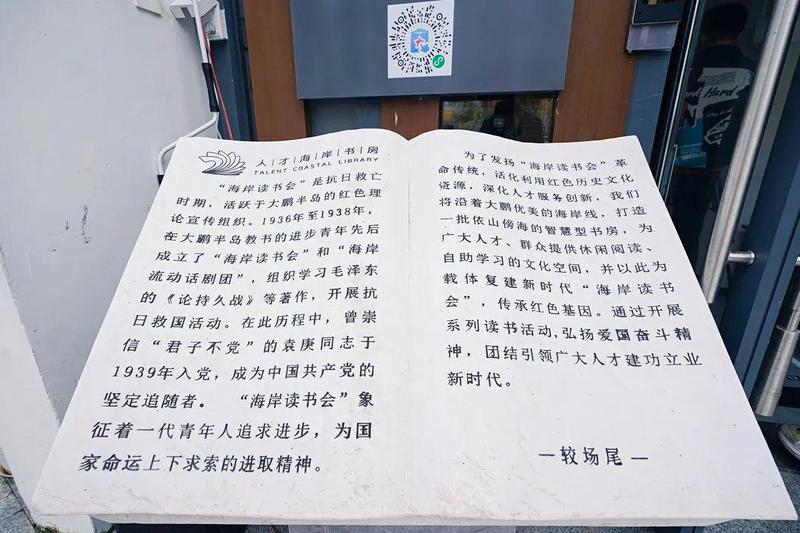 人才海岸书房
TALENT COASTAL LIBRARY
“海岸读书会”是抗日救亡
时期，活跃于大鹏半岛的红色理
论宣传组织。1936年至1938年，
在大鹏半岛教书的进步青年先后
成立了“海岸读书会”和“海岸
流动话剧团”，组织学习毛泽东
的《论持久战》等著作，开展抗
日救国活动。在此历程中，曾崇
信“君子不党”的袁庚同志于
1939年入党，成为中国共产党的
坚定追随者。 “海岸读书会”象
征着一代青年人追求进步，为国
家命运上下求索的进取精神。
为了发扬“海岸读书会”革
命传统，活化利用红色历史文化
资源，深化人才服务创新，我们
将沿着大鹏优美的海岸线，打造
一批依山傍海的智慧型书房，为
广大人才、群众提供休闲阅读、
自助学习的文化空间，并以此为
载体复建新时代“海岸读书
会”，传承红色基因。通过开展
系列读书活动,弘扬爱国奋斗精
神，团结引领广大人才建功立业
新时代。
—较场尾—
Hard